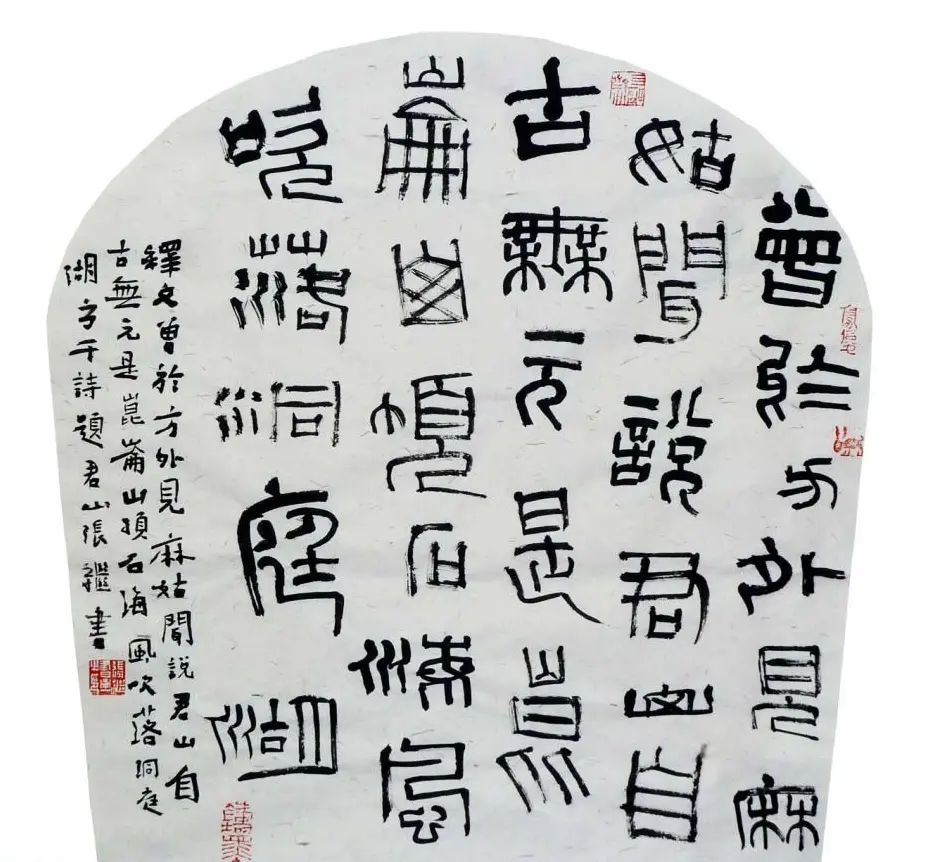 曾於方外見麻
姑聞說君山自
古無元是崑
崙山頂石海風
吹落洞庭湖
釋文曾於方外見麻姑聞說君山自
古無元是崑崙山頂石海風吹落洞庭
湖方干詩題君山張繼書